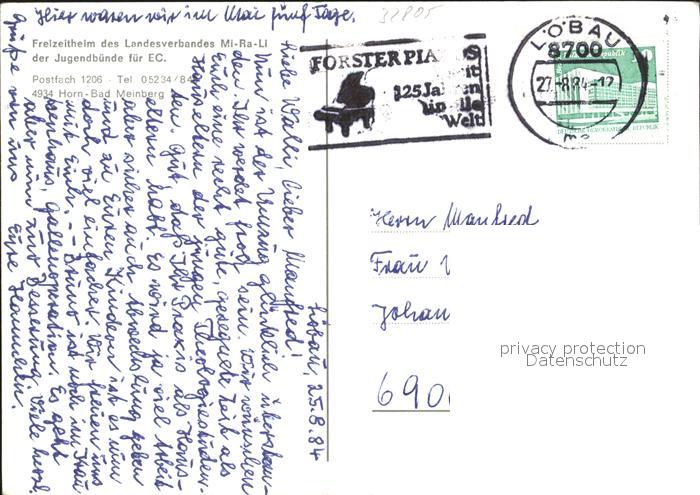 Hier waren wir im Mai fünf Tage.
32805
Freizeitheim des Landesverbandes Mi-Ra-Li
der Jugendbünde für EC.
Postfach 1206 · Tel. 05234/84
4934 Horn-Bad Meinberg
Löbau, 25.8.84
Liebe Walli, lieber Manfred!
Nun ist der Umzug glücklich überstan-
den. Ihr werdet froh sein. Wir wünschen
Euch eine recht gute, gesegnete Zeit als
Hauseltern der jungen Theologiestuden-
ten. Gut, daß Ihr Praxis als Haus-
eltern habt. Es wird ja viel Arbeit
aber sicher auch Abwechslung geben
und zu Euren Kindern ist es nun
doch viel einfacher. Wir freuen uns
mit Euch. – Bruno ist noch im Kran
kenhaus, Gallenoperation. Es geht
aber nun zur Besserung. Viele herzl.
Grüße von uns Eure Hannchen.
FORSTER PIANOS
seit
125 Jahren
in alle
Welt
LÖBAU
8700
27.-8.84-17
DEUTSCHE DEMOKRATISCHE REPUBLIK
Herrn Manfred
Frau
Johan
690
privacy protection
Datenschutz